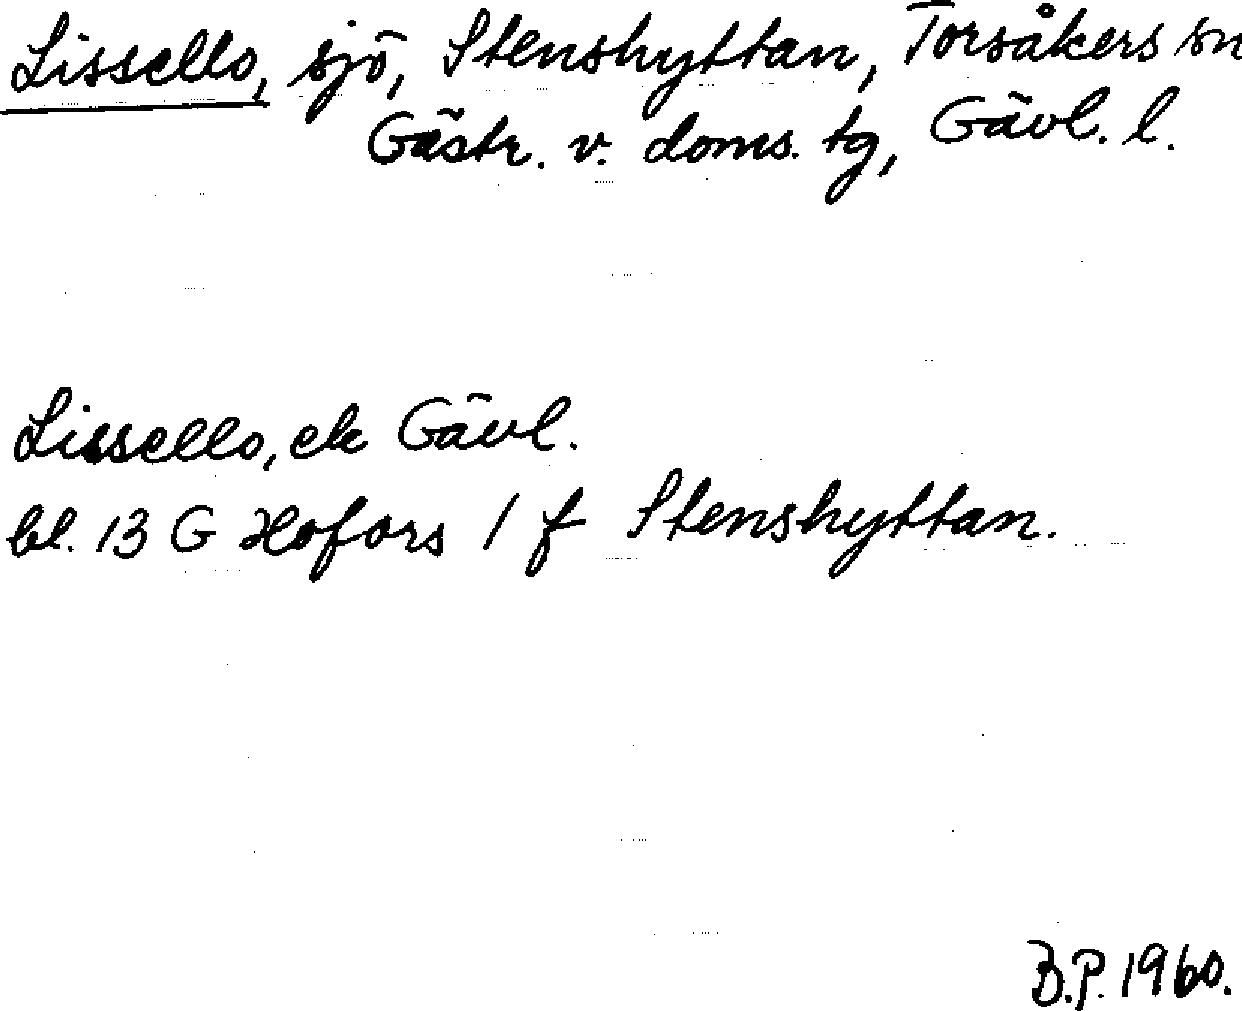 Lissello, sjö, Stenshyttan, Torsåkers sn
Gästr. v. doms. tg, Gävl. l.
Lissello, ek Gävl.
bl. 13 G Hofors 1 f Stenshyttan.
B.P. 1960.